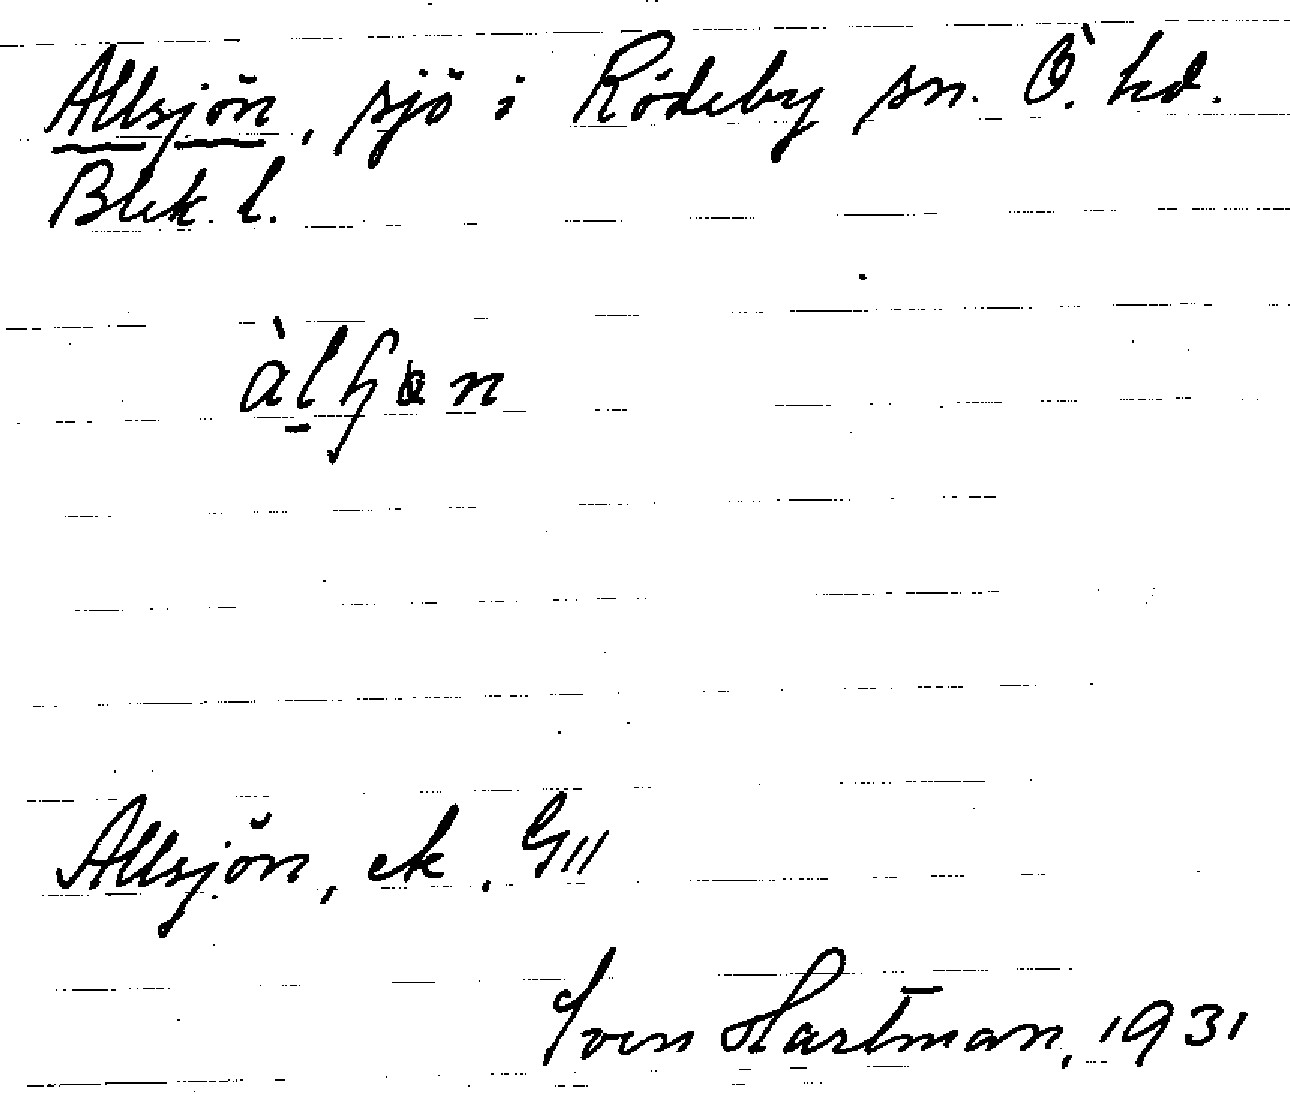 Allsjön, sjö i Rödeby sn. Ö. hd.
Blek. l.
Allsjön, ek. G11
Sven Hartman, 1931